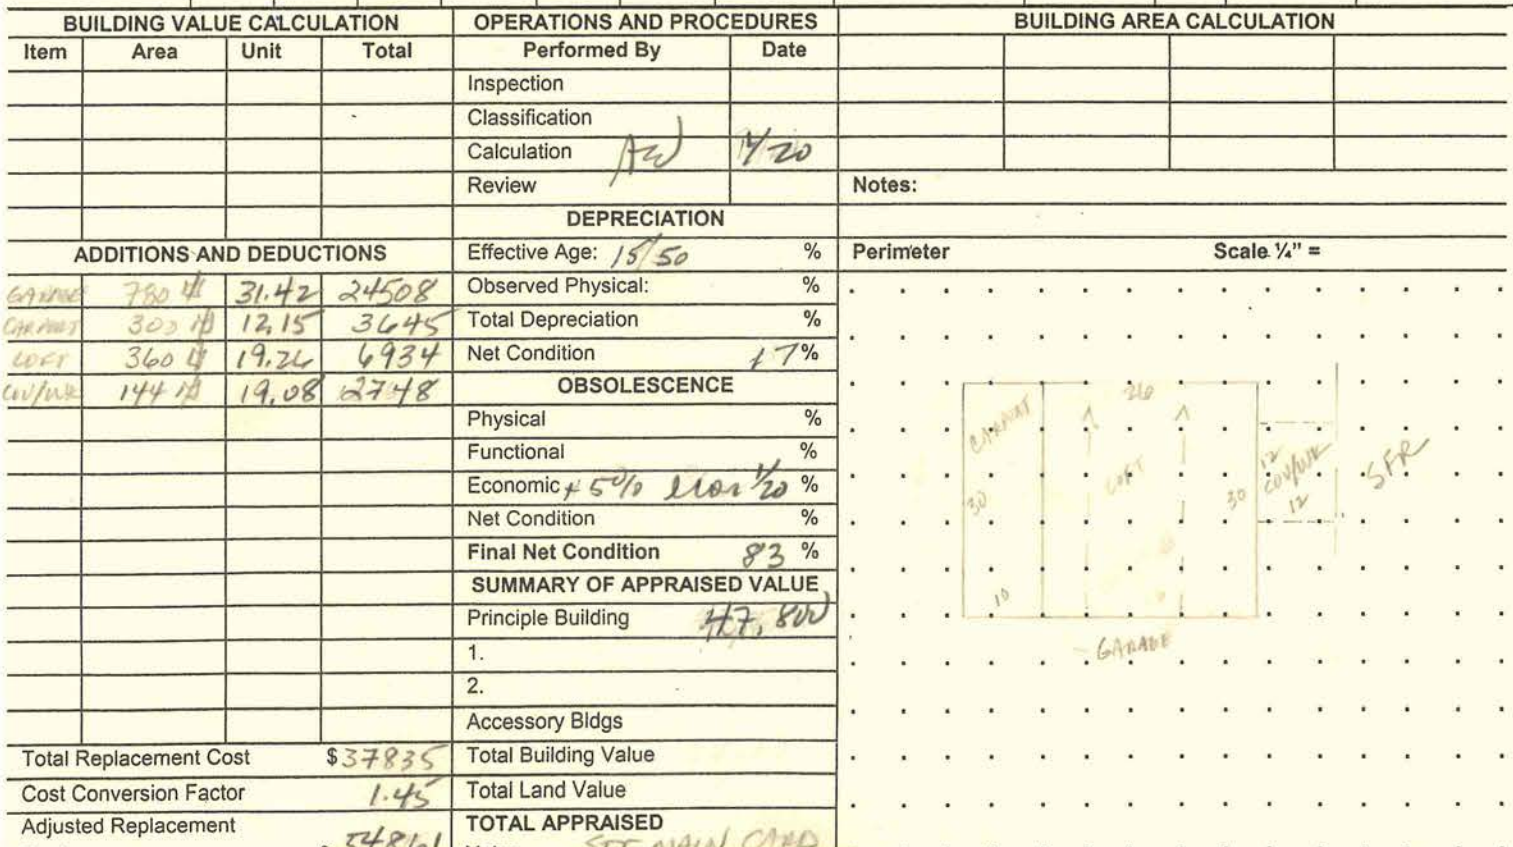 BUILDING VALUE CALCULATION
Item Area Unit Total
ADDITIONS AND DEDUCTIONS
GARAGE 780 31.42 24508
CARPORT 300 12.15 3645
LOFT 360 19.26 6934
COV/WK 144 19.08 2748
Total Replacement Cost $37835
Cost Conversion Factor 1.45
Adjusted Replacement
54861
OPERATIONS AND PROCEDURES
Performed By Date
Inspection
Classification
Calculation AW /20
Review
DEPRECIATION
Effective Age: 15/50 %
Observed Physical: %
Total Depreciation %
Net Condition 17%
OBSOLESCENCE
Physical %
Functional %
Economic +5% 1/20 %
Net Condition %
Final Net Condition 83 %
SUMMARY OF APPRAISED VALUE
Principle Building 47,800
1.
2.
Accessory Bldgs
Total Building Value
Total Land Value
TOTAL APPRAISED
SEE MAIN CARD
BUILDING AREA CALCULATION
Notes:
Perimeter Scale ¼" =
26
CARPORT
LOFT
30
30
12
COV/WK
12
SFR
10
GARAGE